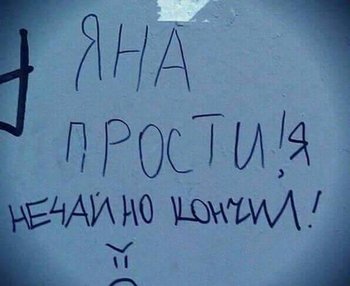 ЯНА
ПРОСТИ!Я
НЕЧАЙНО КОНЧИЛ!